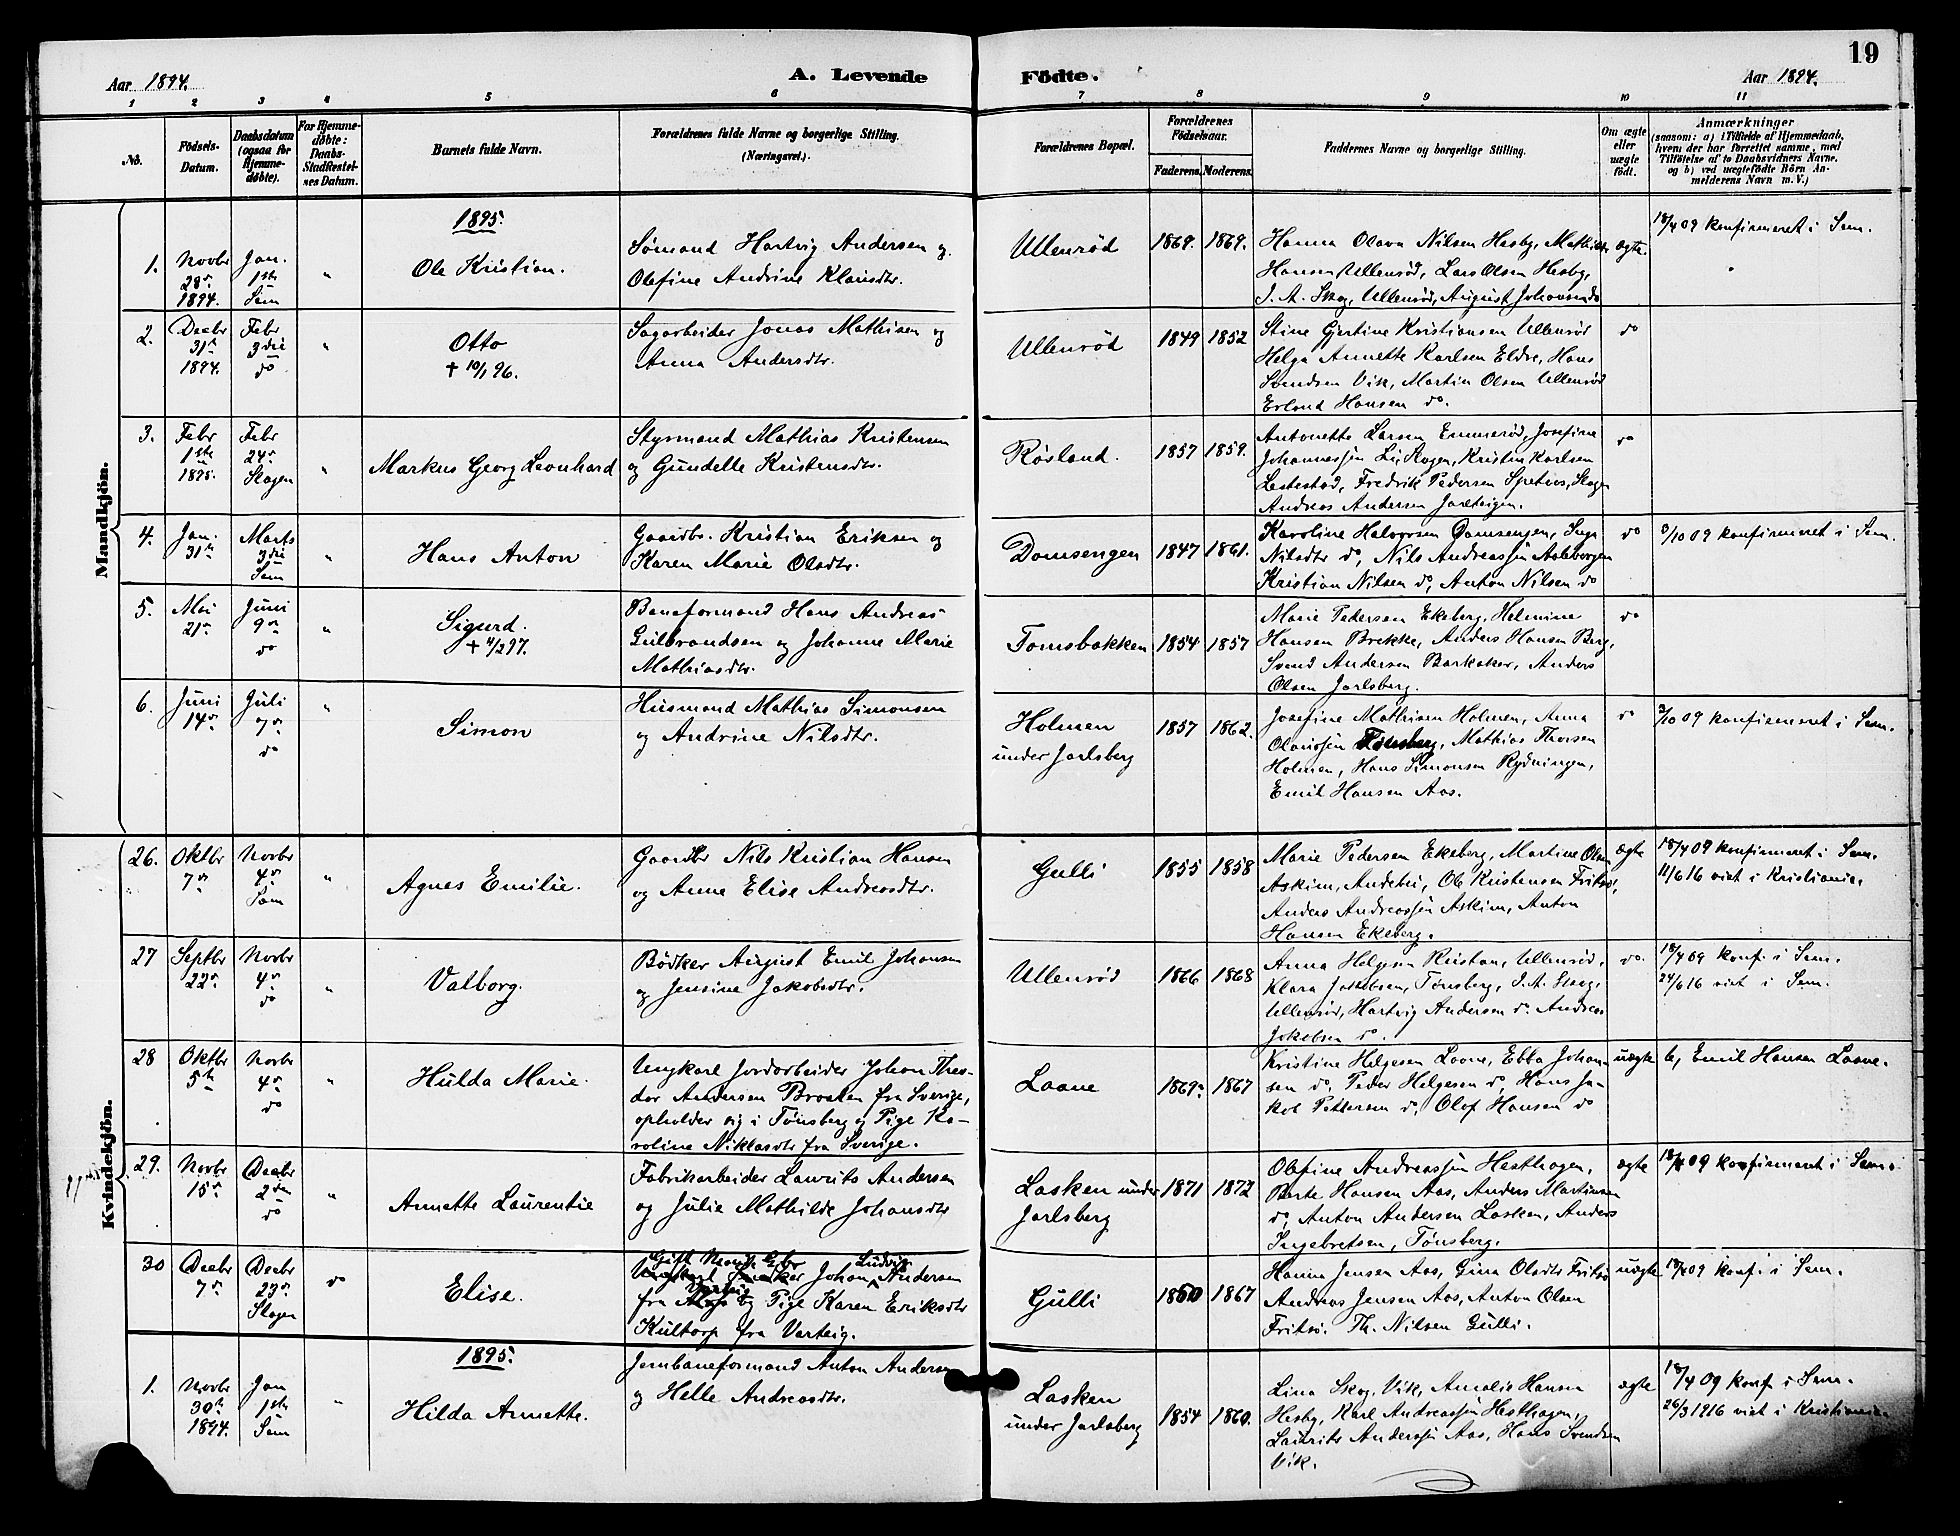 19
Aar 1894.
A. Levende Födte.
Aar 1894.
1 2 3 4 5 6 7 8 9 10 11
No.
Födsels-Datum.
Daabsdatum (ogsaa for Hjemmedöbte).
For Hjemmedöbte: Daabs-Stadfestelses Datum.
Barnets fulde Navn.
Forældrenes fulde Navne og borgerlige Stilling. (Næringsvei.)
Forældrenes Bopæl.
Forældrenes Födselsaar.
Faderens. Moderens.
Faddernes Navne og borgerlige Stilling.
Om ægte eller uægte födt.
Anmærkninger
(saasom: a) i Tilfælde af Hjemmedaab,
hvem der har forrettet samme, med
Tilföielse af to Daabsvidners Navne.
og b) ved uægtefödte Börn An-
melderens Navn m. V.)
Mandkjön.
1895.
1. Novbr 28de 1894. Jan. 1ste Sem " Ole Kristian.
Sømand Hartvig Andersen og
Olefine Andrine Klausdtr.
Ullenrød 1869. 1869.
Hanna Olava Nilsen Hesby, Mathilde
Hansen Ullenrød, Lars Olsen Hesby,
J. A. Skog, Ullenrød, August Johansen do
ægte.
18/4 09 konfirmeret i Sem.
2. Decbr 31te 1894. Febr 3die do " Otto
+ 10/1 96.
Sagarbeider Jonas Mathisen og
Anna Andersdtr.
Ullenrød 1849 1852
Stine Gjertine Kristiansen Ullenrød
Helga Annette Karlsen Eldre, Hans
Svendsen Vik, Martin Olsen Ullenrød
Erland Hansen do.
do
3. Febr 1ste 1895. Febr 24de Slagen " Markus Georg Leonhard
Styrmand Mathias Kristensen
og Gundelle Kristensdtr.
Røsland. 1857 1859.
Antonette Larsen Emmerød, Josefine
Johannessen Li, Slagen, Kristin Karlsen
Lestestad, Fredrik Pedersen Slagen
Andreas Andersen Jarlteigen.
do
4. Jan. 31te Marts 3die Sem " Hans Anton
Gaardbr. Kristian Eriksen og
Karen Marie Olsdtr.
Domsengen 1847 1861.
Karoline Halvorsen Domsengen, Inga
Nilsdtr do, Nils Andreassen Aaleborgen
Kristian Nilsen do, Anton Nilsen do
do
3/10 09 konfirmeret i Sem.
5. Mai 21de Juni 9de do " Sigurd.
+ 4/2 97.
Baneformand Hans Andreas
Gulbrandsen og Johanne Marie
Mathiasdtr.
Tomsbakken 1854 1857
Marie Pedersen Ekeberg, Helmine
Hansen Brekke, Anders Hansen Berg,
Svend Andersen Barkaker, Anders
Olsen Jarlsberg.
do
6. Juni 14de Juli 7de do " Simon
Husmand Mathias Simonsen
og Andrine Nilsdtr.
Holmen
under Jarlsberg
1857 1862.
Josefine Mathisen Holmen, Anna
Olaussen Tønsberg, Mathias Thorsen
Holmen, Hans Simonsen Rydningen,
Emil Hansen Aas.
do
3/10 09 konfirmeret i Sem.
Kvindekjön.
26. Oktbr 7de Novbr 4de Sem " Agnes Emilie.
Gaardbr Nils Kristian Hansen
og Anne Elise Andreasdtr.
Gulli 1855 1858
Marie Pedersen Ekeberg, Martine Olsen
Askim, Andebu, Ole Kristensen Fritsø,
Anders Andreassen Askim, Anton
Hansen Ekeberg.
ægte
18/4 09 konfirmeret i Sem.
11/6 16 viet i Kristiania.
27 Septbr 22de Novbr 4de do " Valborg.
Bødker August Emil Johansen
og Jensine Jakobsdtr.
Ullenrød 1866 1868
Anna Helgesen Ristan, Ullenrød,
Klara Jakobsen, Tønsberg, J. A. Skog,
Ullenrød, Hartvig Andersen do. Andreas
Jakobsen do.
do.
18/4 09 konf. i Sem.
24/6 16 viet i Sem.
28 Oktbr 5te Novbr 4de do " Hulda Marie.
Ungkarl Jordarbeider Johan Theo-
dor Andersen Braaten fra Sverige,
opholder sig i Tønsberg og Pige Ka-
roline Niklasdtr fra Sverige.
Laane 1869. 1867
Kristine Helgesen Laane, Ebba Johan-
sen do, Peder Helgesen do, Hans Ja-
kob Pettersen do, Olof Hansen do
uægte
b, Emil Hansen Laane.
29. Novbr 15de Decbr 2den do " Annette Laurentie
Fabrikarbeider Laurits Andersen
og Julie Mathilde Johansdtr
Lasken under
Jarlsberg
1871 1872
Olefine Andreassen Hesthagen,
Berte Hansen Aas, Anders Martinsen
do, Anton Andersen Lasken, Anders
Ingebretsen, Tønsberg.
ægte
18/4 09 konfirmeret i Sem.
30 Decbr 7de Decbr 23de Slagen do Elise.
Gift Ludvig
Johan Andersen
fra og Pige Karen Eriksdtr
Kultorp fra Varteig.
Gulli 1860 1867
Hanna Jensen Aas, Gina Olsdtr Fritsø
Andreas Jensen Aas, Anton Olsen
Fritsø. Th. Nilsen Gulli.
uægte
18/4 09 konf. i Sem.
1895.
1. Novbr 30te 1894. Jan 1ste Sem " Hilda Annette.
Jernbaneformand Anton Andersen
og Helle Andreasdtr.
Lasken
under Jarlsberg
1854 1860.
Lina Skog, Vik, Amalie Hansen
Hesby, Karl Andreassen Hesthagen,
Laurits Anderssen Aas, Hans Svendsen
Vik.
ægte
18/4 09 konf. i Sem.
26/3 1916 viet i Kristiania.